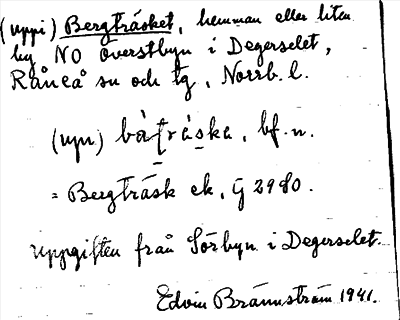 (uppi) Bergträsket, hemman eller liten
by NO överstbyn i Degerselet,
Råneå sn och tg, Norrb. l.
(upp) bàṭrạ́ska, bf. n.
= Bergträsk ek. G 2980.
uppgiften från Sörbyn i Degerselet.
Edvin Brännström 1941.